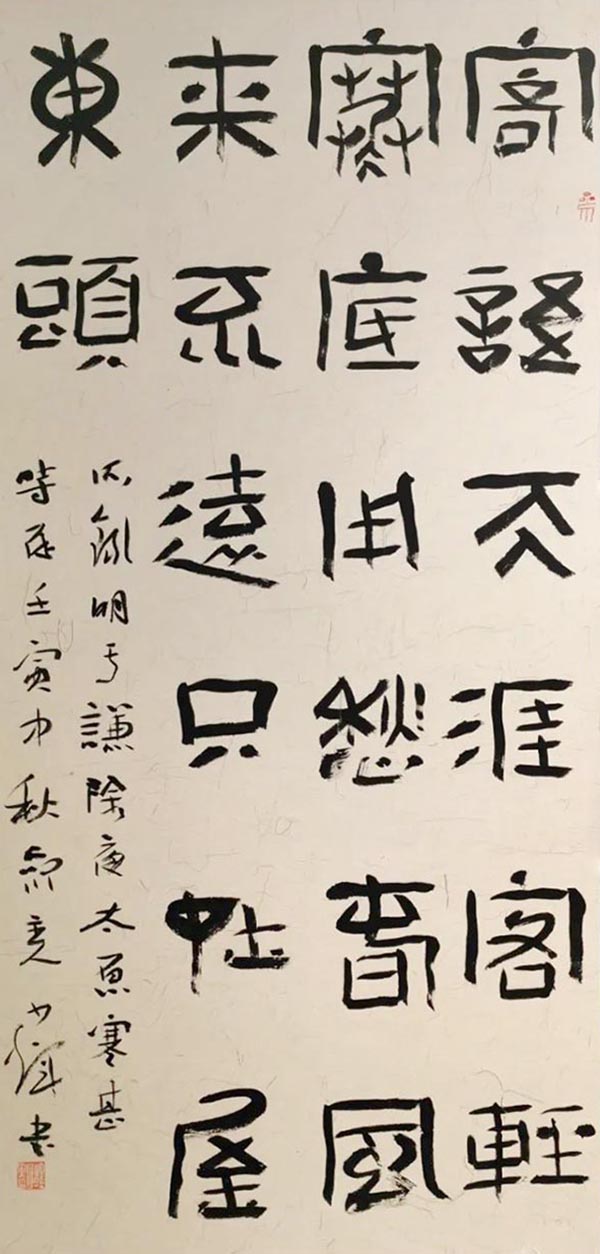 寄語天涯客輕
寒底用愁春風
来不遠只在屋
東頭
錄明于謙除夜太原寒甚
時在壬寅中秋書